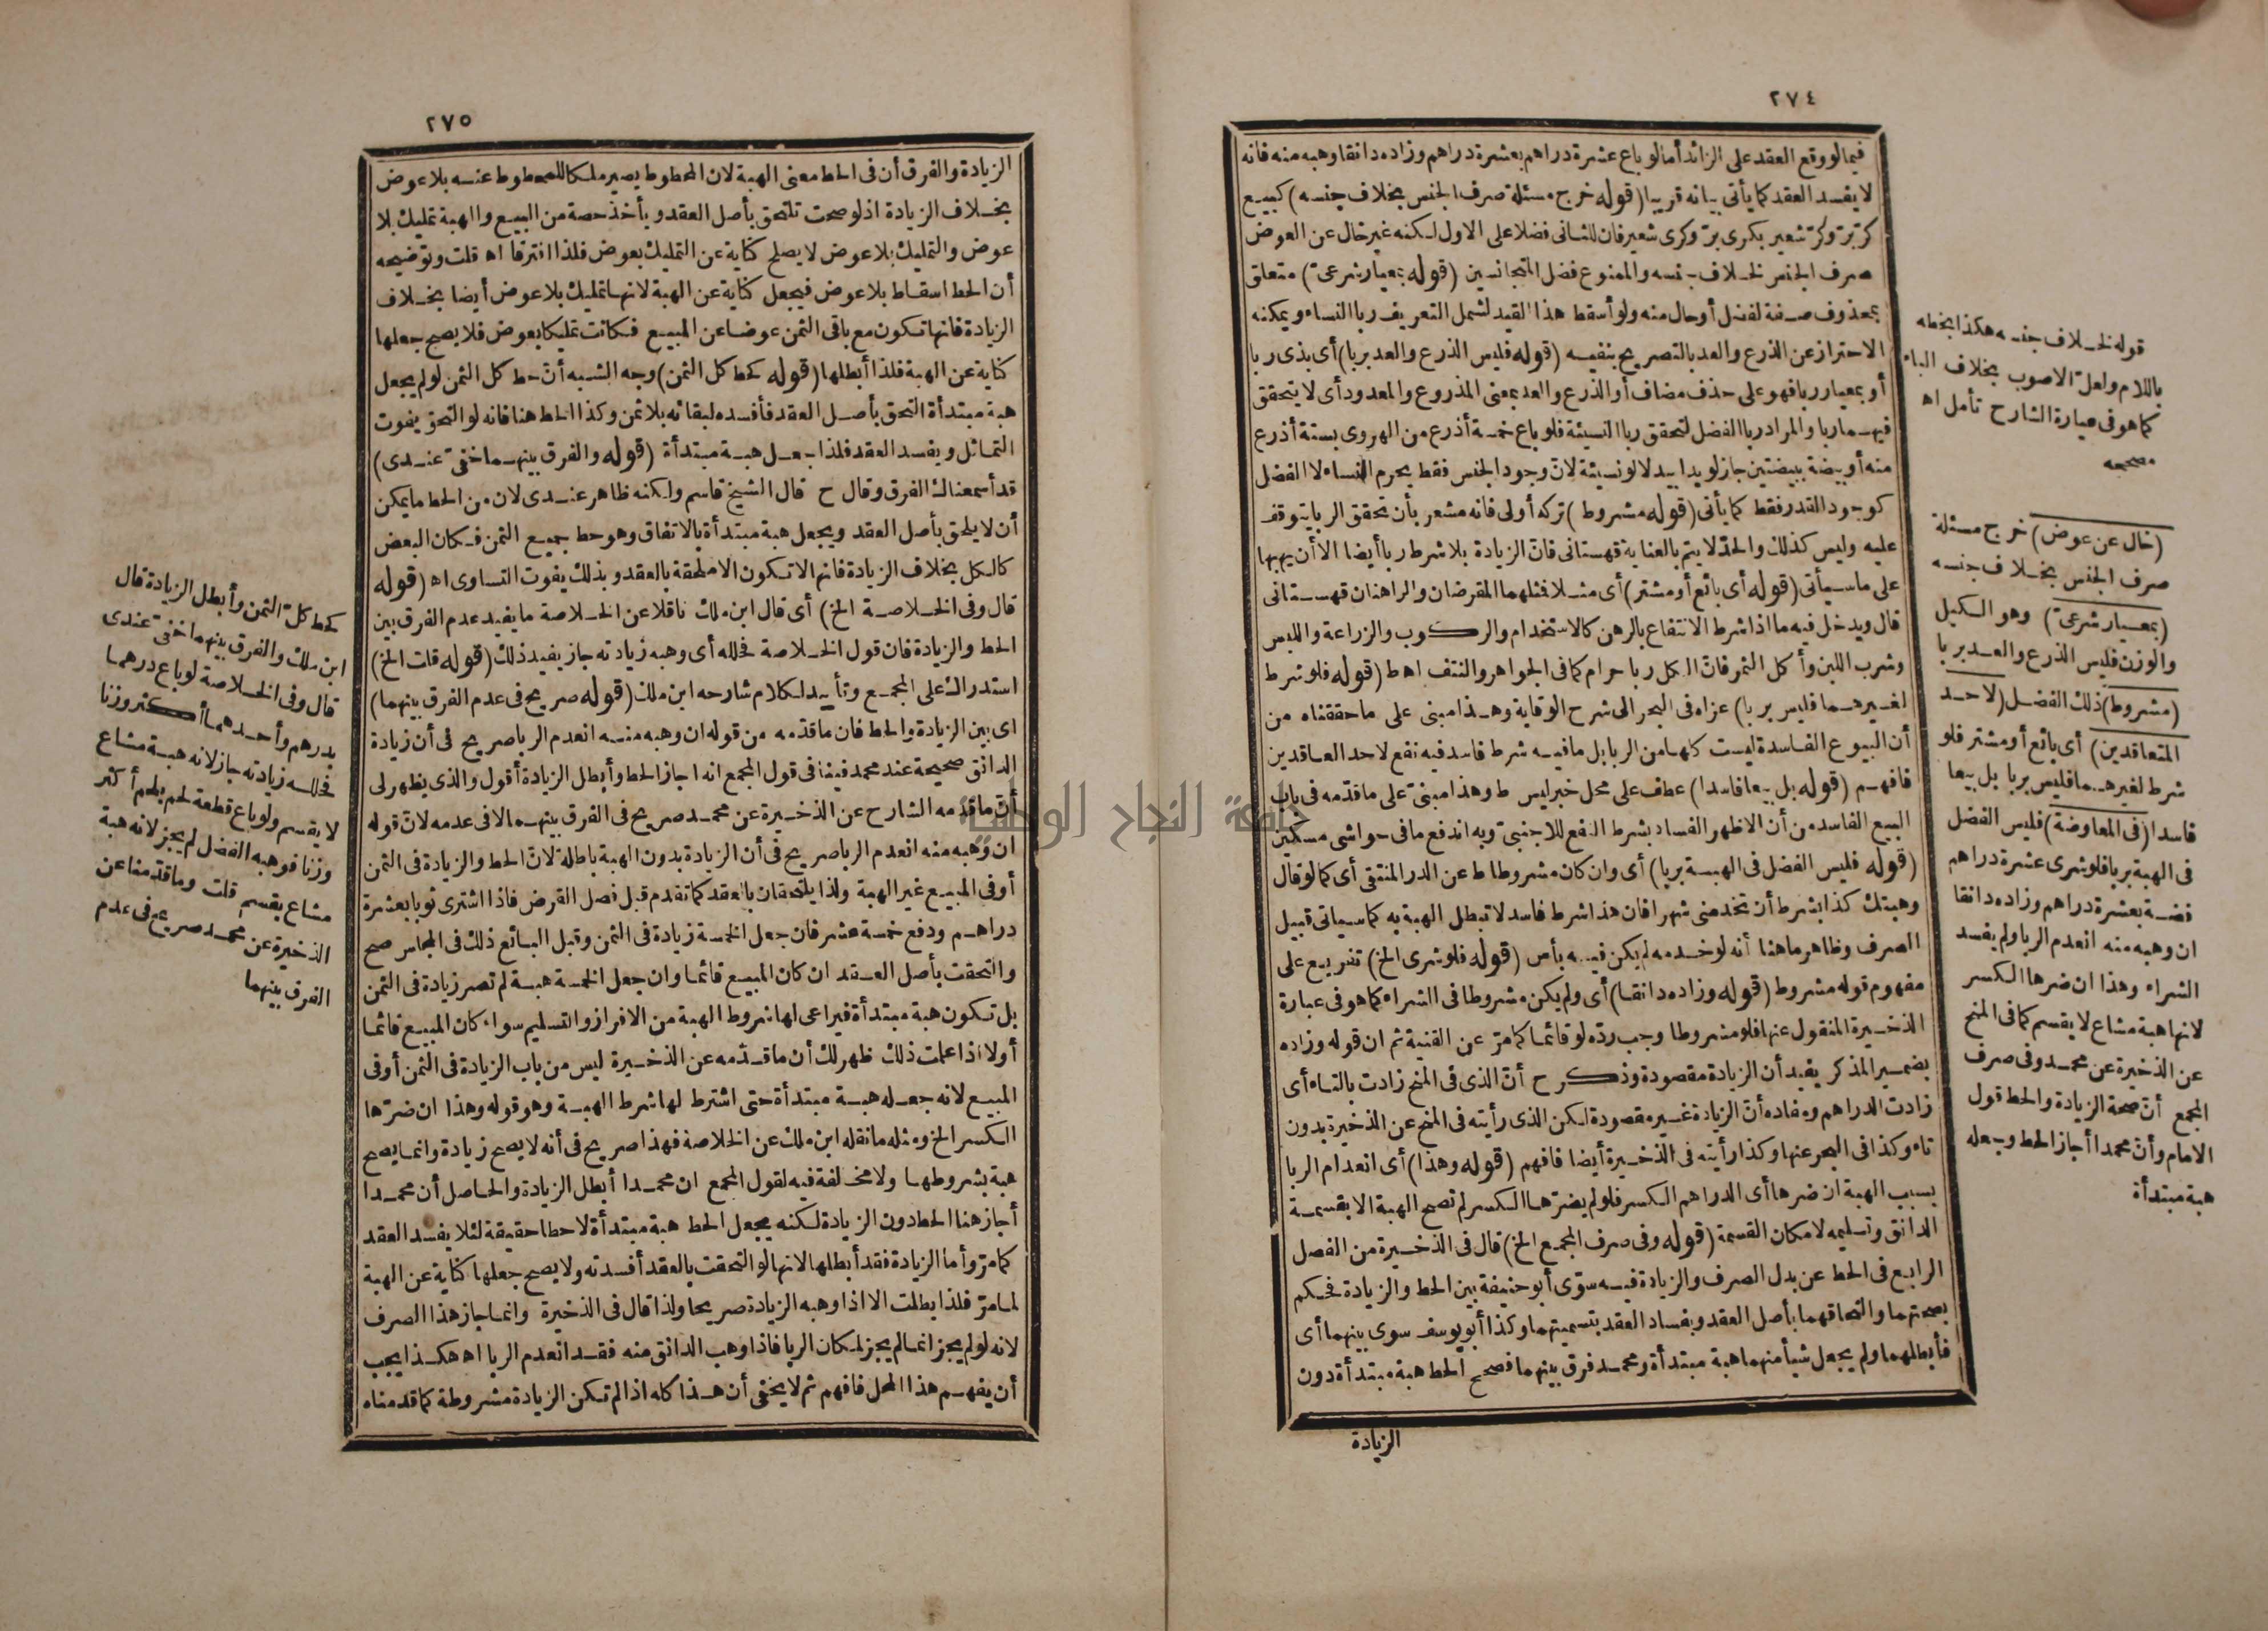 ٢٧٤
فيما لو وقع العقد على الزائد أما لو باع عشرة دراهم بعشرة دراهم وزاده دانقا وهبه منه فانه
لا يفسد العقد كما يأتى بيانه قريبا (قوله خرج مسئلة صرف الجنس بخلاف جنسه) كبيع
كرّ برّ وكرّ شعير بكرى برّ وكرى شعير فان للثانى فضلا على الاول لكنه غير خال عن العوض
صرف الجنس لخلاف جنسه والممنوع فضل المتجانسين (قوله بمعيار شرعىّ) متعلق
بمحذوف صفة لفضل أو حال منه ولو أسقط هذا القيد لشمل التعريف ربا النساء ويمكنه
الاحتراز عن الذرع والعد بالتصريح بنفيه (قوله فليس الذرع والعد بربا) أى بذى ربا
أو بمعيار ربا فهو على حذف مضاف أو الذرع والعد بمعنى المذروع والمعدود أى لا يتحقق
فيهما ربا والمراد ربا الفضل لتحقق ربا النسيئة فلو باع خمسة أذرع من الهروى بستة أذرع
منه أو بيضة ببيضتين جاز لو يدا بيد لا لو نسيئة لانّ وجود الجنس فقط يحرم النساء لا الفضل
كوجود القدر فقط كما يأتى (قوله مشروط) تركه أولى فانه مشعر بأن تحقق الربا يتوقف
عليه وليس كذلك والحدّ لا يتم بالعناية قهستانى فانّ الزيادة بلا شرط ربا أيضا الا أن يهبها
على ما سيأتى (قوله أى بائع أو مشتر) أى مثلا فمثلهما المقرضان والراهنان قهستانى
قال ويدخل فيه ما اذا شرط الانتفاع بالرهن كالاستخدام والركوب والزراعة واللبس
وشرب اللبن وأكل الثمر فانّ الكل ربا حرام كما فى الجواهر والنتف اه ط (قوله فلو شرط
لغيرهما فليس بربا) عزاه فى البحر الى شرح الوقاية وهذا مبنى على ما حققناه من
أن البيوع الفاسدة ليست كلها من الربا بل ما فيه شرط فاسد فيه نفع لاحد العاقدين
فافهم (قوله بل بيعا فاسدا) عطف على محل خبر ليس ط وهذا مبنىّ على ما قدّمه فى باب
البيع الفاسد من أن الاظهر الفساد بشرط النفع للاجنبىّ وبه اندفع ما فى حواشى مسكين
(قوله فليس الفضل فى الهبة بربا) أى وان كان مشروطا ط عن الدر المنتقى أى كما لو قال
وهبتك كذا بشرط أن تخدمنى شهرا فان هذا شرط فاسد لا تبطل الهبة به كما سيأتى قبيل
الصرف وظاهر ما هنا أنه لو خدمه لم يكن فيه بأس (قوله فلو شرى الخ) تفريع على
مفهوم قوله مشروط (قوله وزاده دانقا) أى ولم يكن مشروطا فى الشراء كما هو فى عبارة
الذخيرة المنقول عنها فلو مشروطا وجب ردّه لو قائما كما مرّ عن القنية ثم ان قوله وزاده
بضمير المذكر يفيد أن الزيادة مقصودة وذكر ح أنّ الذى فى المنح زادت بالتاء أى
زادت الدراهم ومفاده أنّ الزيادة غير مقصودة لكن الذى رأيته فى المنح عن الذخيرة بدون
تاء وكذا فى البحر عنها وكذا رأيته فى الذخيرة أيضا فافهم (قوله وهذا) أى انعدام الربا
بسبب الهبة ان ضرها أى الدراهم الكسر فلو لم يضرّها الكسر لم تصح الهبة الا بقسمة
الدانق وتسليمه لامكان القسمة (قوله وفى صرف المجمع الخ) قال فى الذخيرة من الفصل
الرابع فى الحط عن بدل الصرف والزيادة فيه سوّى أبو حنيفة بين الحط والزيادة فحكم
بصحتهما والتحاقهما بأصل العقد وبفساد العقد بتسميتهما وكذا أبو يوسف سوى بينهما أى
فأبطلهما ولم يجعل شيأ منهما هبة مبتدأة ومحمد فرق بينهما فصحح الحط هبة مبتدأة دون
الزيادة
قوله لخلاف جنسه هكذا بخطه
باللام ولعلّ الاصوب بخلاف الباء
كما هو فى عبارة الشارح تأمل اه
مصححه
(خال عن عوض) خرج مسئلة
صرف الجنس بخلاف جنسه
(بمعيار شرعىّ) وهو الكيل
والوزن فليس الذرع والعد بربا
(مشروط) ذلك الفضل (لاحد
المتعاقدين) أى بائع أو مشتر فلو
شرط لغيرهما فليس بربا بل بيعا
فاسدا (فى المعاوضة) فليس الفضل
فى الهبة بربا فلو شرى عشرة دراهم
فضة بعشرة دراهم وزاده دانقا
ان وهبه منه انعدم الربا ولم يفسد
الشراء وهذا ان ضرها الكسر
لانها هبة مشاع لا يقسم كما فى المنح
عن الذخيرة عن محمد وفى صرف
المجمع أنّ صحة الزيادة والحط قول
الامام وأنّ محمدا أجاز الحط وجعله
هبة مبتدأة
٢٧٥
الزيادة والفرق أن فى الحط معنى الهبة لان المحطوط يصير ملكا للمحطوط عنه بلا عوض
بخلاف الزيادة اذ لو صحت تلتحق بأصل العقد ويأخذ حصة من المبيع والهبة تمليك بلا
عوض والتمليك بلا عوض لا يصلح كناية عن التمليك بعوض فلذا افترقا اه قلت وتوضيحه
أن الحط اسقاط بلا عوض فيجعل كناية عن الهبة لانها تمليك بلا عوض أيضا بخلاف
الزيادة فانها تكون مع باقى الثمن عوضا عن المبيع فكانت تمليكا بعوض فلا يصح جعلها
كناية عن الهبة فلذا أبطلها (قوله كحط كل الثمن) وجه الشبه أنّ حط كل الثمن لو لم يجعل
هبة مبتدأة التحق بأصل العقد فأفسده لبقائه بلا ثمن وكذا الحط هنا فانه لو التحق يفوت
التماثل ويفسد العقد فلذا جعل هبة مبتدأة (قوله والفرق بينهما خفىّ عندى)
قد أسمعناك الفرق وقال ح قال الشيخ قاسم ولكنه ظاهر عندى لان من الحط ما يمكن
أن لا يلحق بأصل العقد ويجعل هبة مبتدأة بالاتفاق وهو حط جميع الثمن فكان البعض
كالكل بخلاف الزيادة فانها لا تكون الا ملحقة بالعقد وبذلك يفوت التساوى اه (قوله
قال وفى الخلاصة الخ) أى قال ابن ملك ناقلا عن الخلاصة ما يفيد عدم الفرق بين
الحط والزيادة فان قول الخلاصة فحلله أى وهبه زيادته جاز يفيد ذلك (قوله قلت الخ)
استدراك على المجمع وتأييد لكلام شارحه ابن ملك (قوله صريح فى عدم الفرق بينهما)
اى بين الزيادة والحط فان ما قدّمه من قوله ان وهبه منه انعدم الربا صريح فى أن زيادة
الدانق صحيحة عند محمد فينافى قول المجمع انه اجاز الحط وأبطل الزيادة أقول والذى يظهر لى
أنّ ما قدّمه الشارح عن الذخيرة عن محمد صريح فى الفرق بينهما لا فى عدمه لانّ قوله
ان وهبه منه انعدم الربا صريح فى أن الزيادة بدون الهبة باطلة لانّ الحط والزيادة فى الثمن
أو فى المبيع غير الهبة ولذا يلتحقان بالعقد كما تقدم قبل فصل القرض فاذا اشترى ثوبا بعشرة
دراهم ودفع خمسة عشر فان جعل الخمسة زيادة فى الثمن وقبل البائع ذلك فى المجلس صح
والتحقت بأصل العقد ان كان المبيع قائما وان جعل الخمسة هبة لم تصر زيادة فى الثمن
بل تكون هبة مبتدأة فيراعى لها شروط الهبة من الافراز والتسليم سواء كان المبيع قائما
أولا اذا علمت ذلك ظهر لك أن ما قدّمه عن الذخيرة ليس من باب الزيادة فى الثمن أو فى
المبيع لانه جعله هبة مبتدأة حتى اشترط لها شرط الهبة وهو قوله وهذا ان ضرّها
الكسر الخ ومثله ما نقله ابن ملك عن الخلاصة فهذا صريح فى أنه لا يصح زيادة وانما يصح
هبة بشروطها ولا مخالفة فيه لقول المجمع ان محمدا أبطل الزيادة والحاصل أن محمدا
أجاز هنا الحط دون الزيادة لكنه يجعل الحط هبة مبتدأة لا حطا حقيقة لئلا يفسد العقد
كما مرّ وأما الزيادة فقد أبطلها لانها لو التحقت بالعقد أفسدته ولا يصح جعلها كناية عن الهبة
لما مرّ فلذا بطلت الا اذا وهبه الزيادة صريحا ولذا قال فى الذخيرة وانما جاز هذا الصرف
لانه لو لم يجز انما لم يجز لمكان الربا فاذا وهب الدانق منه فقد انعدم الربا اه هكذا يجب
أن يفهم هذا المحل فافهم ثم لا يخفى أن هذا كله اذا لم تكن الزيادة مشروطة كما قدمناه
كحط كلّ الثمن وأبطل الزيادة قال
ابن ملك والفرق بينهما خفىّ عندى
قال وفى الخلاصة لو باع درهما
بدرهم وأحدهما أكثر وزنا
فحلله زيادته جاز لانه هبة مشاع
لا يقسم ولو باع قطعة لحم بلحم أكثر
وزنا فوهبه الفضل لم يجز لانه هبة
مشاع يقسم قلت وما قدّمنا عن
الذخيرة عن محمد صريح فى عدم
الفرق بينهما
جامعة النجاح الوطنية